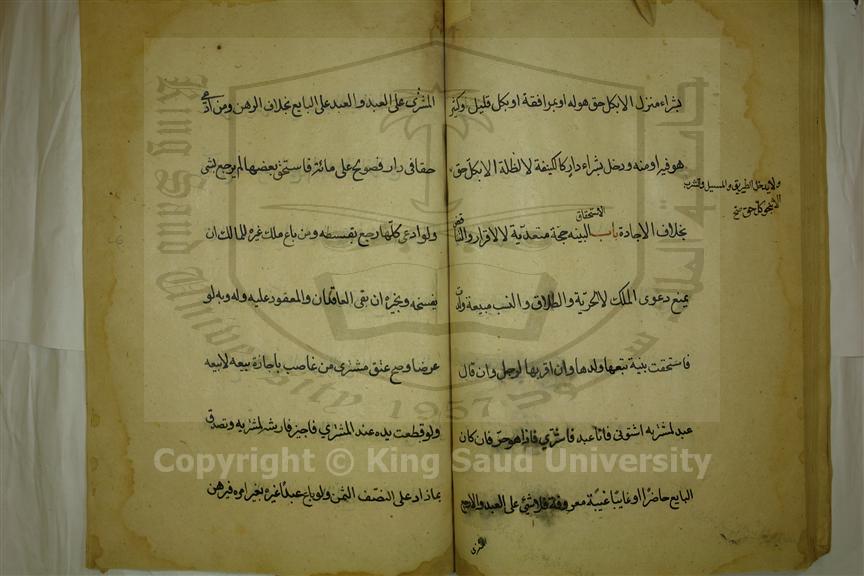 بشراء منزل الا بكل حق هو له او بمرافقه او بكل قليل وكثير
هو فيه او منه ودخل بشراء دار كالكنيف لا الظلة الا بكل حق
ولا يدخل الطريق والمسيل والشرب
الا بنحو كل حق صح
بخلاف الاجارة باب الاستحقاق البينه حجة متعدية لا الاقرار والتناقض
يمنع دعوى الملك لا الحرية والطلاق والنسب مبيعة ولدت
فاستحقت ببينة تبعها ولدها وان اقر بها لرجل لا وان قال
عبد لمشتر به اشترنى فانا عبد فاشترى فاذا هو حر فان كان
البايع حاضرا او غايبا غيبة معروفة فلا شئ على العبد والا رجع
المشترى
المشترى على العبد والعبد على البايع بخلاف الرهن ومن ادعى
حقا فى دار فصولح على مائة فاستحق بعضها لم يرجع بشى
ولو ادعى كلها رجع بقسطه ومن باع ملك غيره للمالك ان
يفسخه ويجيزه ان بقى العاقدان والمعقود عليه وله وبه لو
عرضا وصح عتق مشترى من غاصب باجازة بيعه لا بيعه
ولو قطعت يده عند المشترى فاجيز فارشه لمشتريه وتصدق
بما زاد على النصف الثمن ولو باع عبد غيره بغير امره فبرهن
King Saud University
جامعة الملك سعود
1957
Copyright © King Saud University